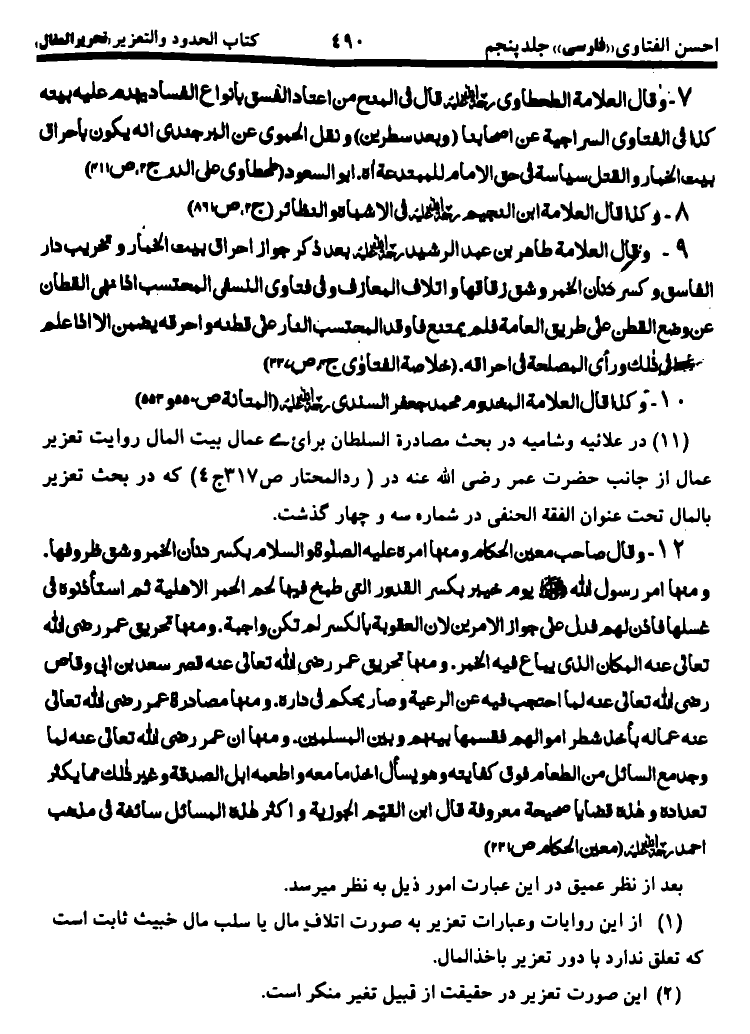 احسن الفتاوی «فارسی» جلد پنجم ۴۹۰ کتاب الحدود والتعزیر «تحریر المقال»
۷- وقال العلامة الطحطاوی رحمه الله قال فی المنح من اعتاد الفسق بأنواع الفساد یهدم علیه بیته
کذا فی الفتاوی السراجیة عن اصحابنا (وبعد سطرین) و نقل الحموی عن البرجندی انه یکون بأحراق
بیت الخمار و القتل سیاسة فی حق الامام للمبتدعة اه. ابو السعود (طحطاوی علی الدر ج۲، ص۴۱۱)
۸- و کذا قال العلامة ابن النجیم رحمه الله فی الاشباه و النظائر (ج۲، ص۸۶۱)
۹- وقال العلامة طاهر بن عبد الرشید رحمه الله بعد ذکر جواز احراق بیت الخمار و تخریب دار
الفاسق و کسر دنان الخمر و شق زقاقها و اتلاف المعازف و فی فتاوی النسفی المحتسب اذا نهی القطان
عن وضع القطن علی طریق العامة فلم یمتنع فاوقد المحتسب النار علی قطنه و احرقه یضمن الا اذا علم
فی ذلک و رأی المصلحة فی احراقه. (خلاصة الفتاوی ج۴، ص۳۳۷)
۱۰- و کذا قال العلامة المخدوم محمد جعفر السندی رحمه الله (المتانة ص۵۵۰ و ۵۵۳)
(۱۱) در علائیه وشامیه در بحث مصادرة السلطان برائ ے عمال بیت المال روایت تعزیر
عمال از جانب حضرت عمر رضی الله عنه در ( ردالمحتار ص۳۱۷ج۴) که در بحث تعزیر
بالمال تحت عنوان الفقة الحنفی در شماره سه و چهار گذشت.
۱۲- و قال صاحب معین الحکام و منها امره علیه الصلوة و السلام بکسر دنان الخمر و شق ظروفها.
و منها امر رسول الله ﷺ یوم خیبر بکسر القدور التی طبخ فیها لحم الحمر الاهلیة ثم استأذنوه فی
غسلها فاذن لهم فدل علی جواز الامرین لان العقوبة بالکسر لم تکن واجبة. و منها تحریق عمر رضی الله
تعالی عنه المکان الذی یباع فیه الخمر. و منها تحریق عمر رضی الله تعالی عنه قصر سعد بن ابی وقاص
رضی الله تعالی عنه لما احتجب فیه عن الرعیة و صار یحکم فی داره. و منها مصادرة عمر رضی الله تعالی
عنه عماله بأخذ شطر اموالهم فقسمها بینهم و بین المسلمین. و منها ان عمر رضی الله تعالی عنه لما
وجد مع السائل من الطعام فوق کفایته و هو یسأل اخذ ما معه و اطعمه ابل الصدقة و غیر ذلک مما یکثر
تعداده و هذه قضایا صحیحة معروفة قال ابن القیم الجوزیة و اکثر هذه المسائل سائغة فی مذهب
احمد رحمه الله (معین الحکام ص۲۳۱)
بعد از نظر عمیق در این عبارت امور ذیل به نظر میرسد.
(۱) از این روایات وعبارات تعزیر به صورت اتلاف مال یا سلب مال خبیث ثابت است
که تعلق ندارد با دور تعزیر باخذالمال.
(۲) این صورت تعزیر در حقیقت از قبیل تغیر منکر است.